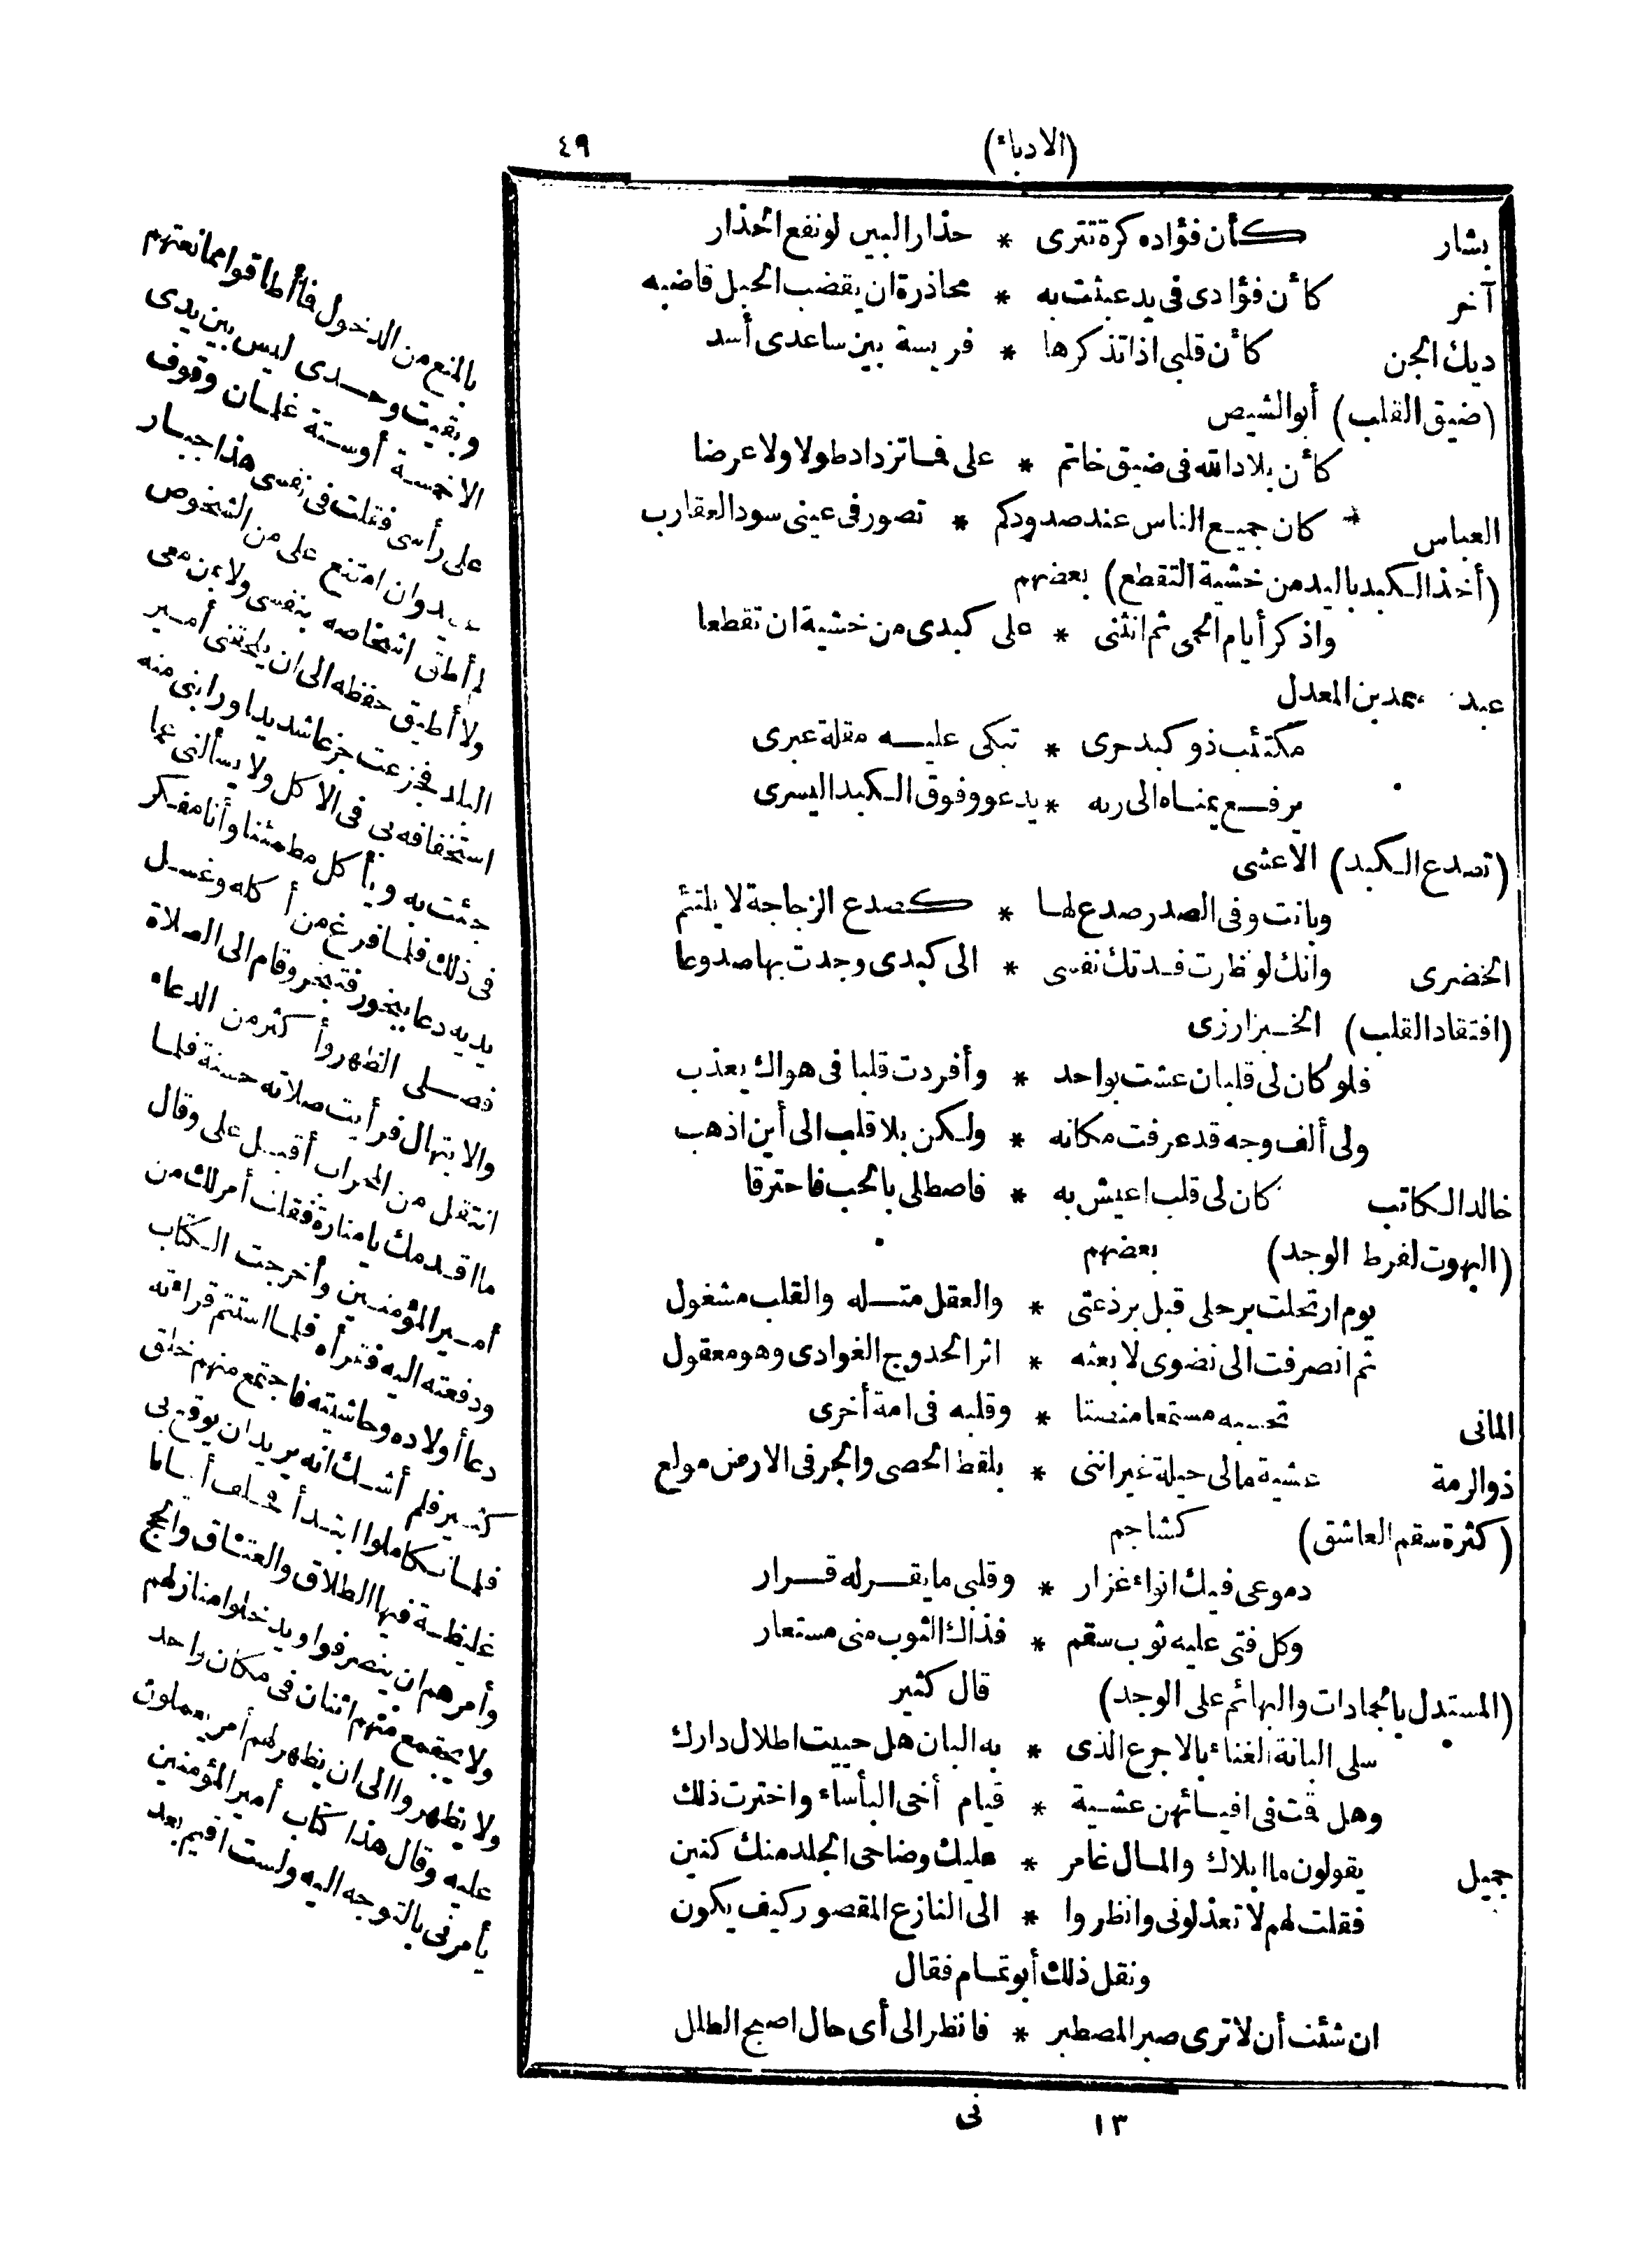 (الادباء) ٤٩
بشار كأن فؤاده كرة تنزى * حذار البين لو نفع الحذار
آخر كأن فؤادى فى يد عبثت به * محاذرة ان يقضب الحبل قاضبه
ديك الجن كأن قلبى اذا تذكرها * فريسة بين ساعدى أسد
(ضيق القلب) أبو الشيص
كأن بلاد الله فى ضيق خاتم * على فما تزداد طولا ولا عرضا
العباس كان جميع الناس عند صدودكم * تصور فى عينى سود العقارب
(أخذ الكبد باليد من خشية التقطع) بعضهم
واذكر أيام الحمى ثم انثنى * على كبدى من خشية ان تقطعا
عبد بن المعدل
مكتئب ذو كبد حرى * تبكى عليه مقلة عبرى
يرفع يمناه الى ربه * يدعو وفوق الكبد اليسرى
(تصدع الكبد) الاعشى
وبانت وفى الصدر صدع لها * كصدع الزجاجة لا يلتئم
الخضرى وانك لو نظرت فدتك نفسى * الى كبدى وجدت بها صدوعا
(افتقاد القلب) الخبزارزى
فلو كان لى قلبان عشت بواحد * وأفردت قلبا فى هواك يعذب
ولى ألف وجه قد عرفت مكانه * ولكن بلا قلب الى أين اذهب
خالد الكاتب كان لى قلب اعيش به * فاصطلى بالحب فاحترقا
(البهوت لفرط الوجد) بعضهم
يوم ارتحلت برحلى قبل برذعتى * والعقل متله والقلب مشغول
ثم انصرفت الى نضوى لابعثه * اثر الحدوج الغوادى وهو معقول
المانى تحسبه مستمعا منصتا * وقلبه فى امة أخرى
ذو الرمة عشية مالى حيلة غير اننى * بلقط الحصى والجر فى الارض مولع
(كثرة سقم العاشق) كشاجم
دموعى فيك انواء غزار * وقلبى ما يقر له قرار
وكل فتى عليه ثوب سقم * فذاك الثوب منى مستعار
(المستدل بالجمادات والبهائم على الوجد) قال كثير
سلى البانة الغناء بالاجرع الذى * به البان هل حييت اطلال دارك
وهل قمت فى افيائهن عشية * قيام أخى البأساء واخترت ذلك
جميل يقولون ما ابلاك والمال غامر * عليك وضاحى الجلد منك كنين
فقلت لهم لا تعذلونى وانظروا * الى النازع المقصور كيف يكون
ونقل ذلك أبو تمام فقال
ان شئت أن لا ترى صبر المصطبر * فانظر الى أى حال اصبح الطلل
١٣ نى
بالمنع من الدخول فما أطاقوا ممانعتهم
وبقيت وحدى ليس بين يدى
الا خمسة أو ستة غلمان وقوف
على رأسى فقلت فى نفسى هذا جبار
عنيد وان امتنع على من الشخوص
لم أطق اشخاصه بنفسى ولا بمن معى
ولا أطيق حفظه الى ان يلحقنى أمير
البلد فجزعت جزعا شديدا ورابنى منه
استخفافه بى فى الاكل ولا يسألنى عما
جئت به ويأكل مطمئنا وأنا مفكر
فى ذلك فلما فرغ من أكله وغسل
يديه دعا ببخور فتبخر وقام الى الصلاة
فصلى الظهر وأكثر من الدعاء
والابتهال فرأيت صلاته حسنة فلما
انتقل من المحراب أقبل على وقال
ما اقدمك يا منارة فقلت أمر لك من
أمير المؤمنين وأخرجت الكتاب
ودفعته اليه فقرأه فلما استتم قراءته
دعا أولاده وحاشيته فاجتمع منهم خلق
كثير فلم أشك انه يريد ان يوقع بى
فلما تكاملوا ابتدأ فحلف أيمانا
غليظة فيها الطلاق والعتاق والحج
وأمرهم ان ينصرفوا ويدخلوا منازلهم
ولا يجتمع منهم اثنان فى مكان واحد
ولا يظهروا الى ان يظهر لهم أمر يعملون
عليه وقال هذا كتاب أمير المؤمنين
يأمرنى بالتوجه اليه ولست اقيم بعد